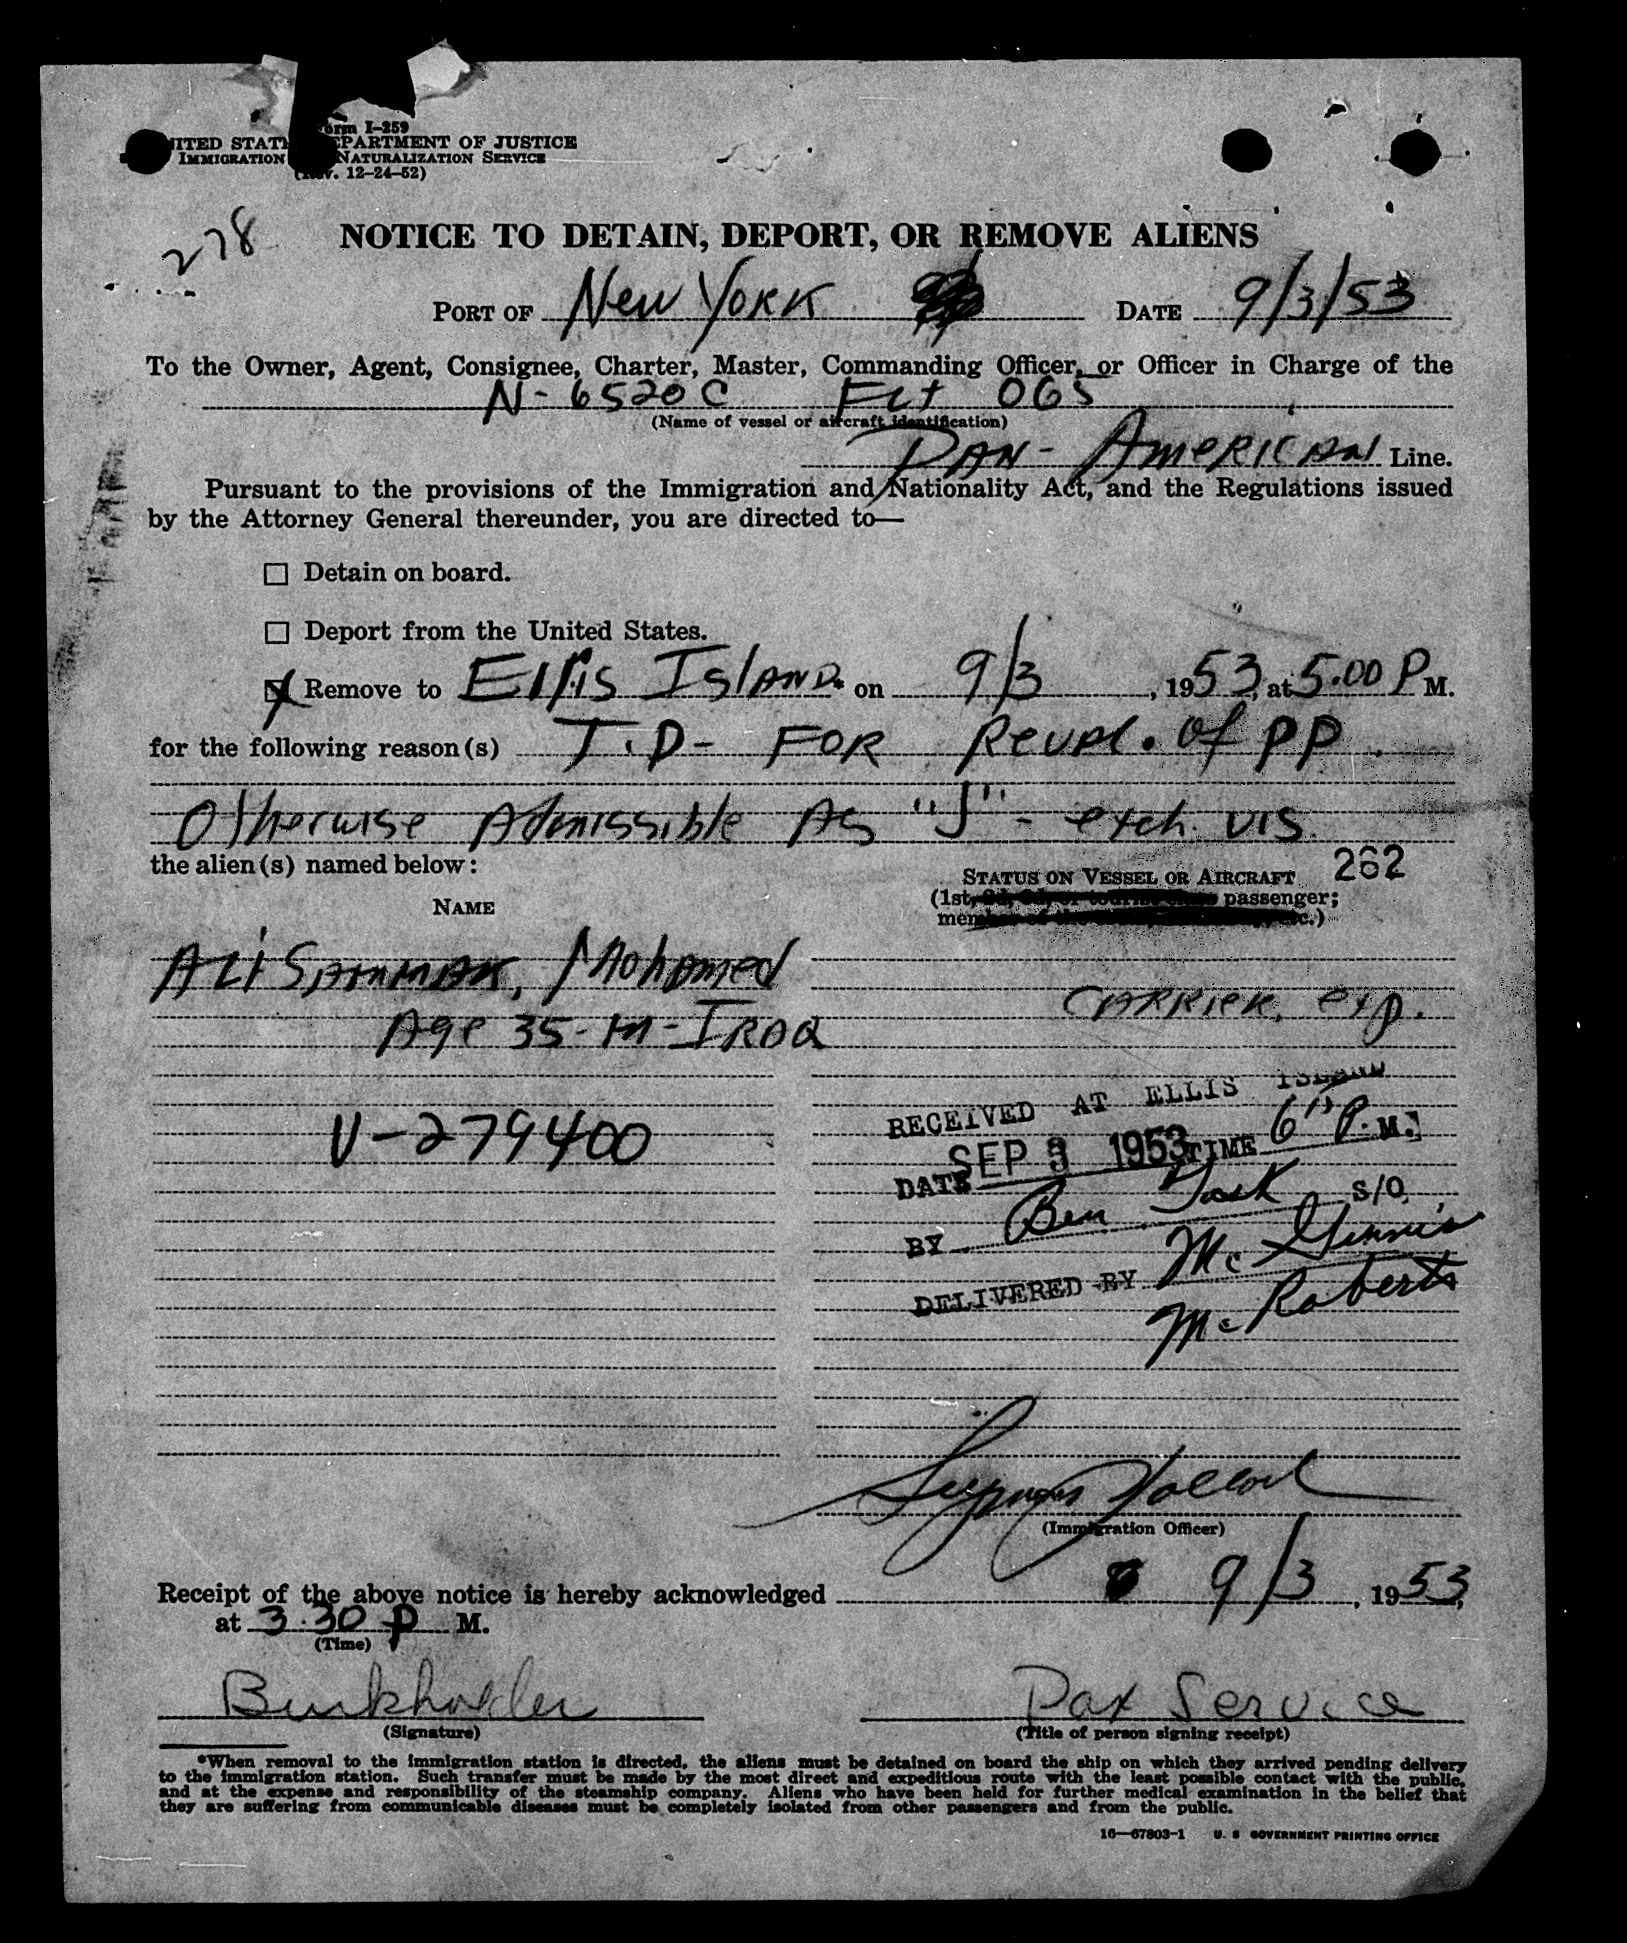 Form I-259
UNITED STATES DEPARTMENT OF JUSTICE
IMMIGRATION NATURALIZATION SERVICE
(Rev. 12-24-52)
278
NOTICE TO DETAIN, DEPORT, OR REMOVE ALIENS
PORT OF New York DATE 9/3/53
To the Owner, Agent, Consignee, Charter, Master, Commanding Officer, or Officer in Charge of the
N-6520C FLt 065
(Name of vessel or aircraft identification)
PAN-AMERICAN Line.
Pursuant to the provisions of the Immigration and Nationality Act, and the Regulations issued
by the Attorney General thereunder, you are directed to—
Detain on board.
Deport from the United States.
Remove to Ellis Island* on 9/3, 1953, at 5.00 P M.
for the following reason(s) T.D- FOR Reval. of PP.
Otherwise Admissible As "J" - exch. vis.
the alien(s) named below:
262
STATUS ON VESSEL OR AIRCRAFT
(1st, passenger;
NAME
Ali SAMMAK, Mohamed
Age 35-M-IRAQ
CARRIER exp.
V-279400
RECEIVED AT ELLIS ISLAND
DATE SEP 3 1953 TIME 6 P.M.
BY Ben S/O
DELIVERED BY McGinnis
McRoberts
(Immigration Officer)
Receipt of the above notice is hereby acknowledged 9/3, 1953,
at 3.30 P M.
(Time)
Burkholder Pax Service
(Signature) (Title of person signing receipt)
*When removal to the immigration station is directed, the aliens must be detained on board the ship on which they arrived pending delivery
to the immigration station. Such transfer must be made by the most direct and expeditious route with the least possible contact with the public,
and at the expense and responsibility of the steamship company. Aliens who have been held for further medical examination in the belief that
they are suffering from communicable diseases must be completely isolated from other passengers and from the public.
16—67803-1 U. S GOVERNMENT PRINTING OFFICE